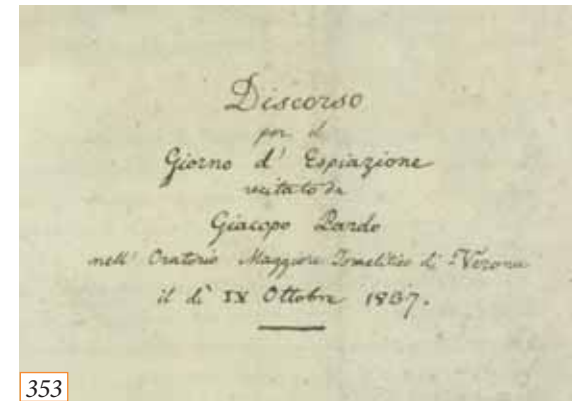 Discorso
per il
Giorno d' Espiazione
recitato da
Giacopo Pardo
nell' Oratorio Maggiore Israelitico di Verona
il dì IX Ottobre 1837.
353